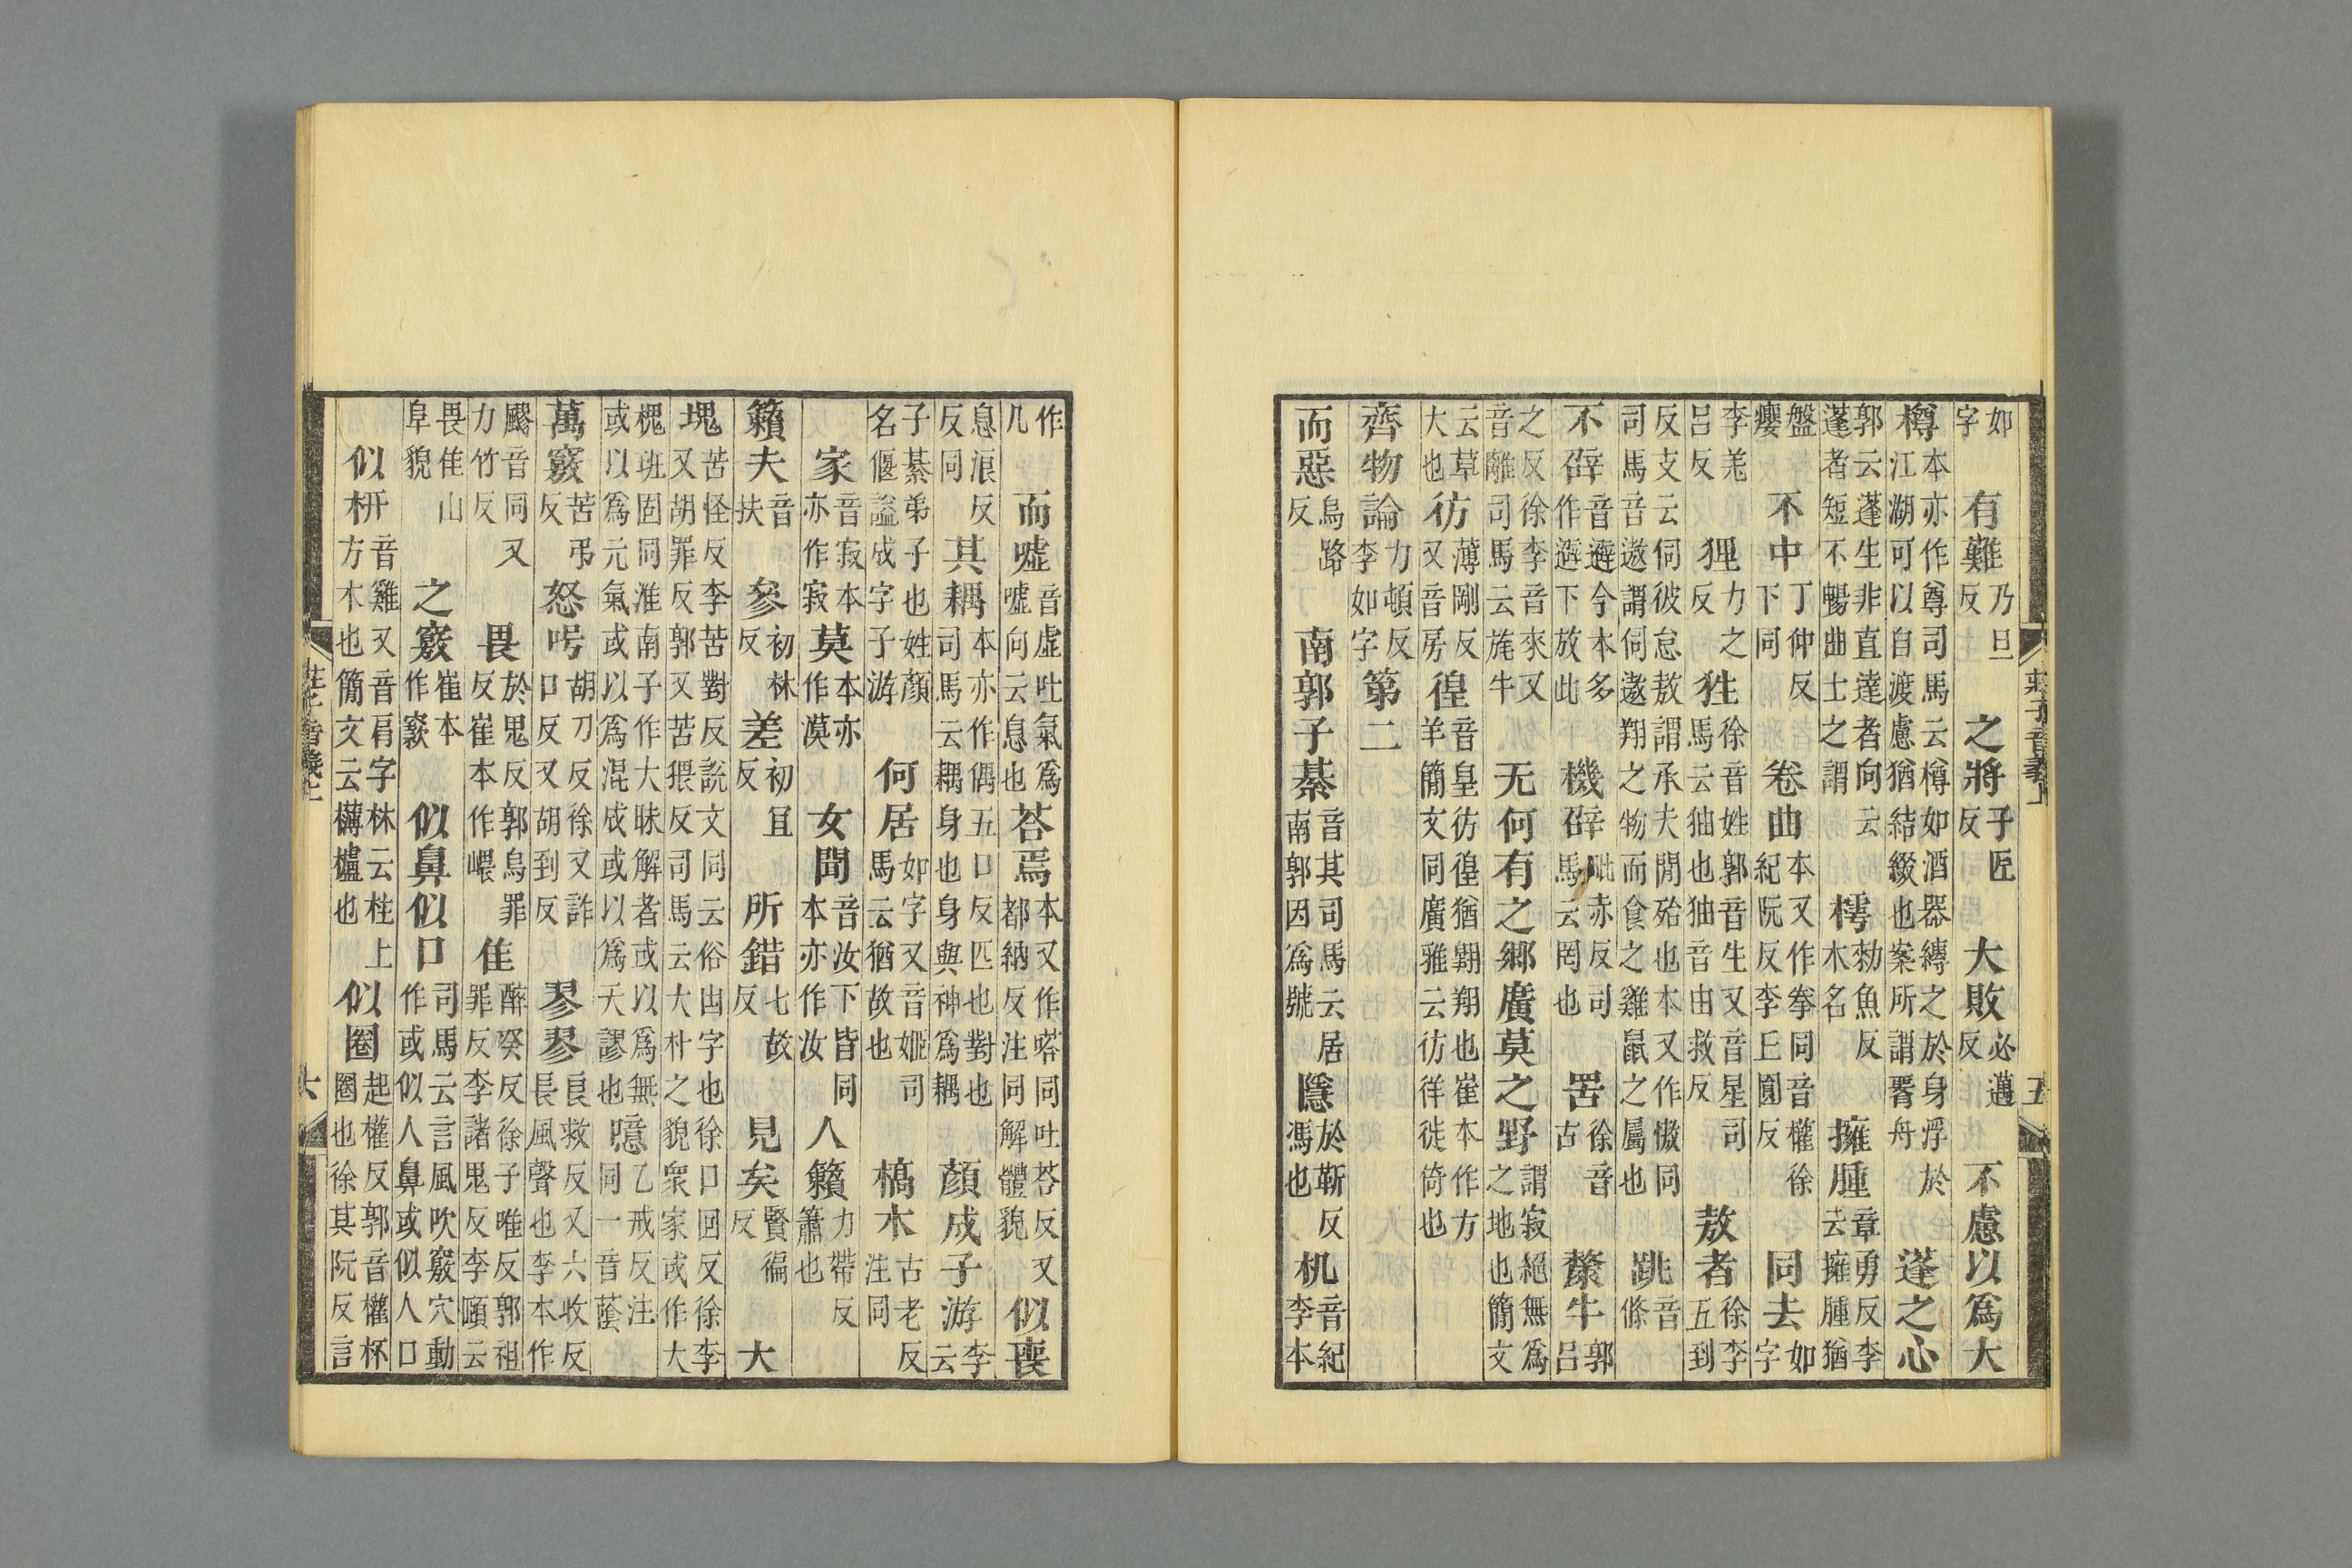 如字 有難乃旦反 之將子匠反 大敗必邁反 不慮以爲大
樽本亦作尊司馬云樽如酒器縛之於身浮於江湖可以自渡慮猶結綴也案所謂罯舟 蓬之心
郭云蓬生非直達者向云蓬者短不暢曲士之謂 樗勑魚反木名 擁腫章勇反李云擁腫猶
盤癭 不中丁仲反下同 卷曲本又作拳同音權徐紀阮反李丘圓反 同去如字
李羌呂反 狸力之反 狌徐音姓郭音生又音星司馬云狌也㹨音由救反 敖者徐李五到
反支云伺彼怠敖謂承夫閒殆也本又作慠同司馬音遨謂伺遨翔之物而食之雞鼠之屬也 跳音條
不辟音避今本多作避下放此 機辟毗赤反司馬云罔也 罟徐音古 斄牛郭呂
之反徐李音來又音離司馬云旄牛 无何有之鄉廣莫之野謂寂絕無爲之地也簡文
云草大也 彷薄剛反又音房 徨音皇彷徨猶翱翔也崔本作方羊簡文同廣雅云彷徉徙倚也
齊物論力頓反李如字 第二
而惡烏路反 南郭子綦音其司馬云居南郭因爲號 隱於靳反馮也 机音紀李本
莊子音義上 五
作几 而噓音虛吐氣爲噓向云息也 荅焉本又作嗒同吐荅反又都納反注同解體貌 似喪
息浪反 反同 其耦本亦作偶五口反匹也對也司馬云耦身也身與神爲耦 顏成子游李云
子綦弟子也姓顏名偃諡成字子游 何居如字又音姬司馬云猶故也 槁木古老反注同
家音寂本亦作寂 莫本亦作漠 女聞音汝下皆同本亦作汝 人籟力帶反簫也
籟夫音扶 參初林反 差初且反 所錯七故反 見矣賢徧反 大
塊苦怪反李苦對反說文同云俗凷字也徐口回反徐李又胡罪反郭又苦猥反司馬云大朴之貌衆家或作大
槐班固同淮南子作大昧解者或以爲無或以爲元氣或以爲混成或以爲天謬也 噫乙戒反注同一音蔭
萬竅苦弔反 怒呺胡刀反徐又詐口反又胡到反 翏翏良救反又六收反長風聲也李本作
飂音同又力竹反 畏於鬼反郭烏罪反崔本作嵔 佳醉癸反徐子唯反郭祖罪反李諸鬼反李頤云
畏佳山阜貌 之竅崔本作窾 似鼻似口司馬云言風吹竅穴動作或似人鼻或似人口
似枅音雞又音肩字林云柱上方木也簡文云欂櫨也 似圈起權反郭音權杯圈也徐其阮反言
莊子音義上 六